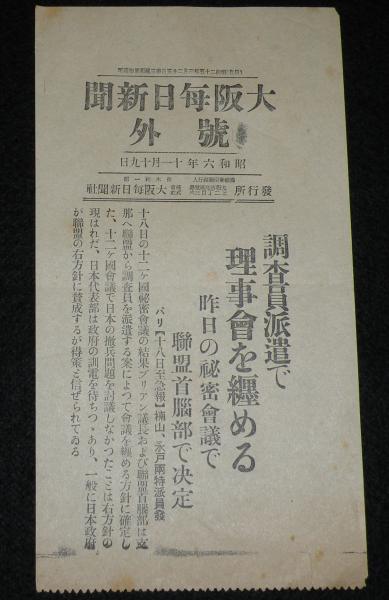 大阪毎日新聞
號外
昭和六年十一月十九日
發行所 大阪毎日新聞社
調査員派遣で
理事會を纏める
昨日の祕密會議で
聯盟首腦部で決定
パリ【十八日至急報】楠山、永戸兩特派員發
十八日の十二ケ國祕密會議の結果ブリアン議長および聯盟首腦部は支
那へ聯盟から調査員を派遣する案によつて會議を纏める方針に確定し
た、十二ケ國會議で日本の撤兵問題を討議しなかつたことは右方針の
現はれだ、日本代表部は政府の訓電を待ちつゝあり、一般に日本政府
が聯盟の右方針に賛成するが得策と信ぜられてゐる